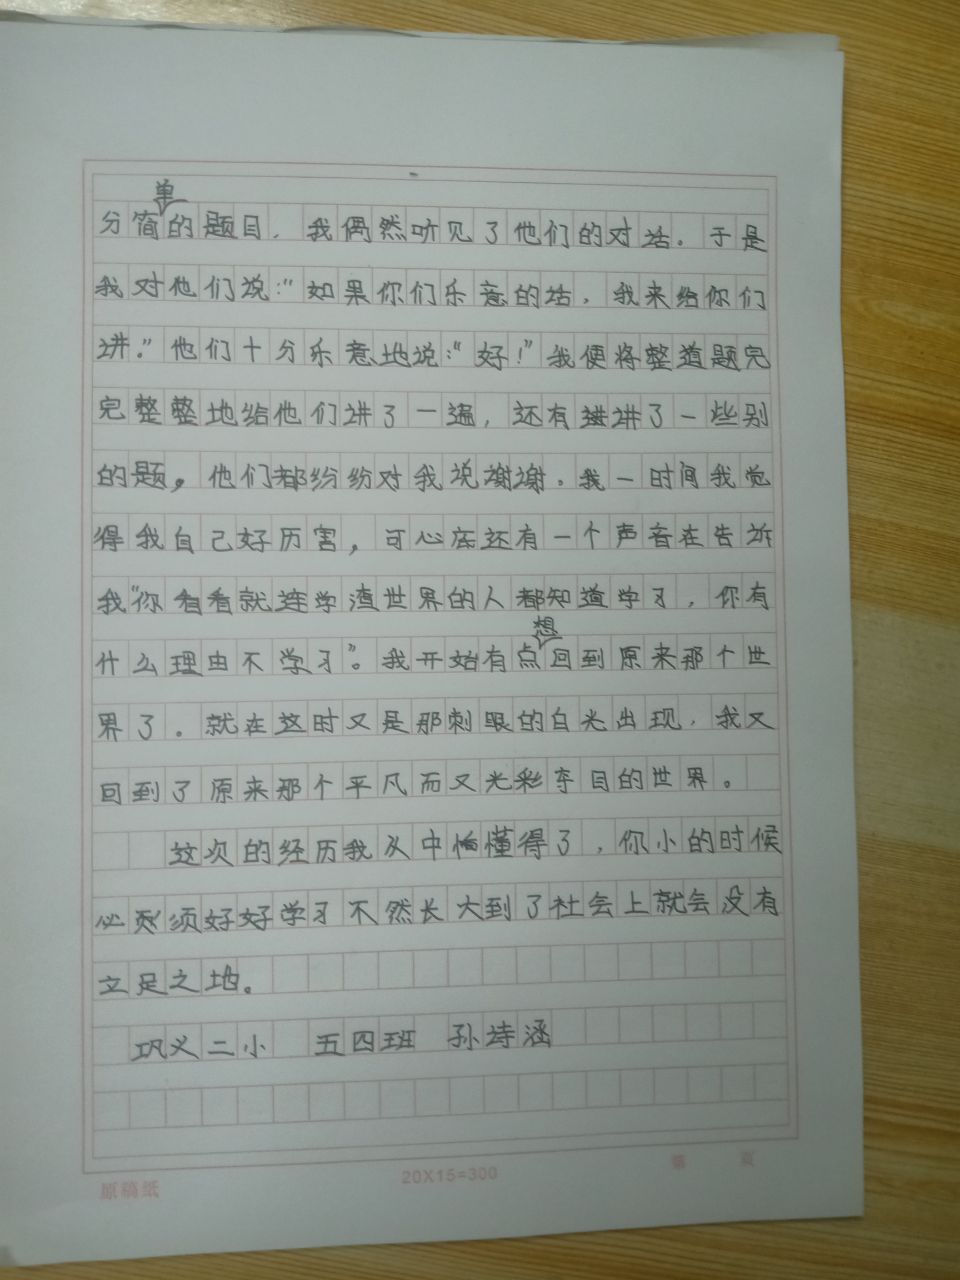 分简单的题目，我偶然听见了他们的对话。于是
我对他们说：“如果你们乐意的话，我来给你们
讲。”他们十分乐意地说：“好！”我便将整道题完
完整整地给他们讲了一遍，还有讲了一些别
的题。他们都纷纷对我说谢谢。我一时间我觉
得我自己好历害，可心底还有一个声音在告诉
我“你看看就连学渣世界的人都知道学习，你有
什么理由不学习”。我开始有点想回到原来那个世
界了。就在这时又是那刺眼的白光出现，我又
回到了原来那个平凡而又光彩夺目的世界。
这次的经历我从中懂得了，你小的时候
必须好好学习不然长大到了社会上就会没有
立足之地。
巩义二小 五四班 孙诗涵
原稿纸 20X15=300 第 页